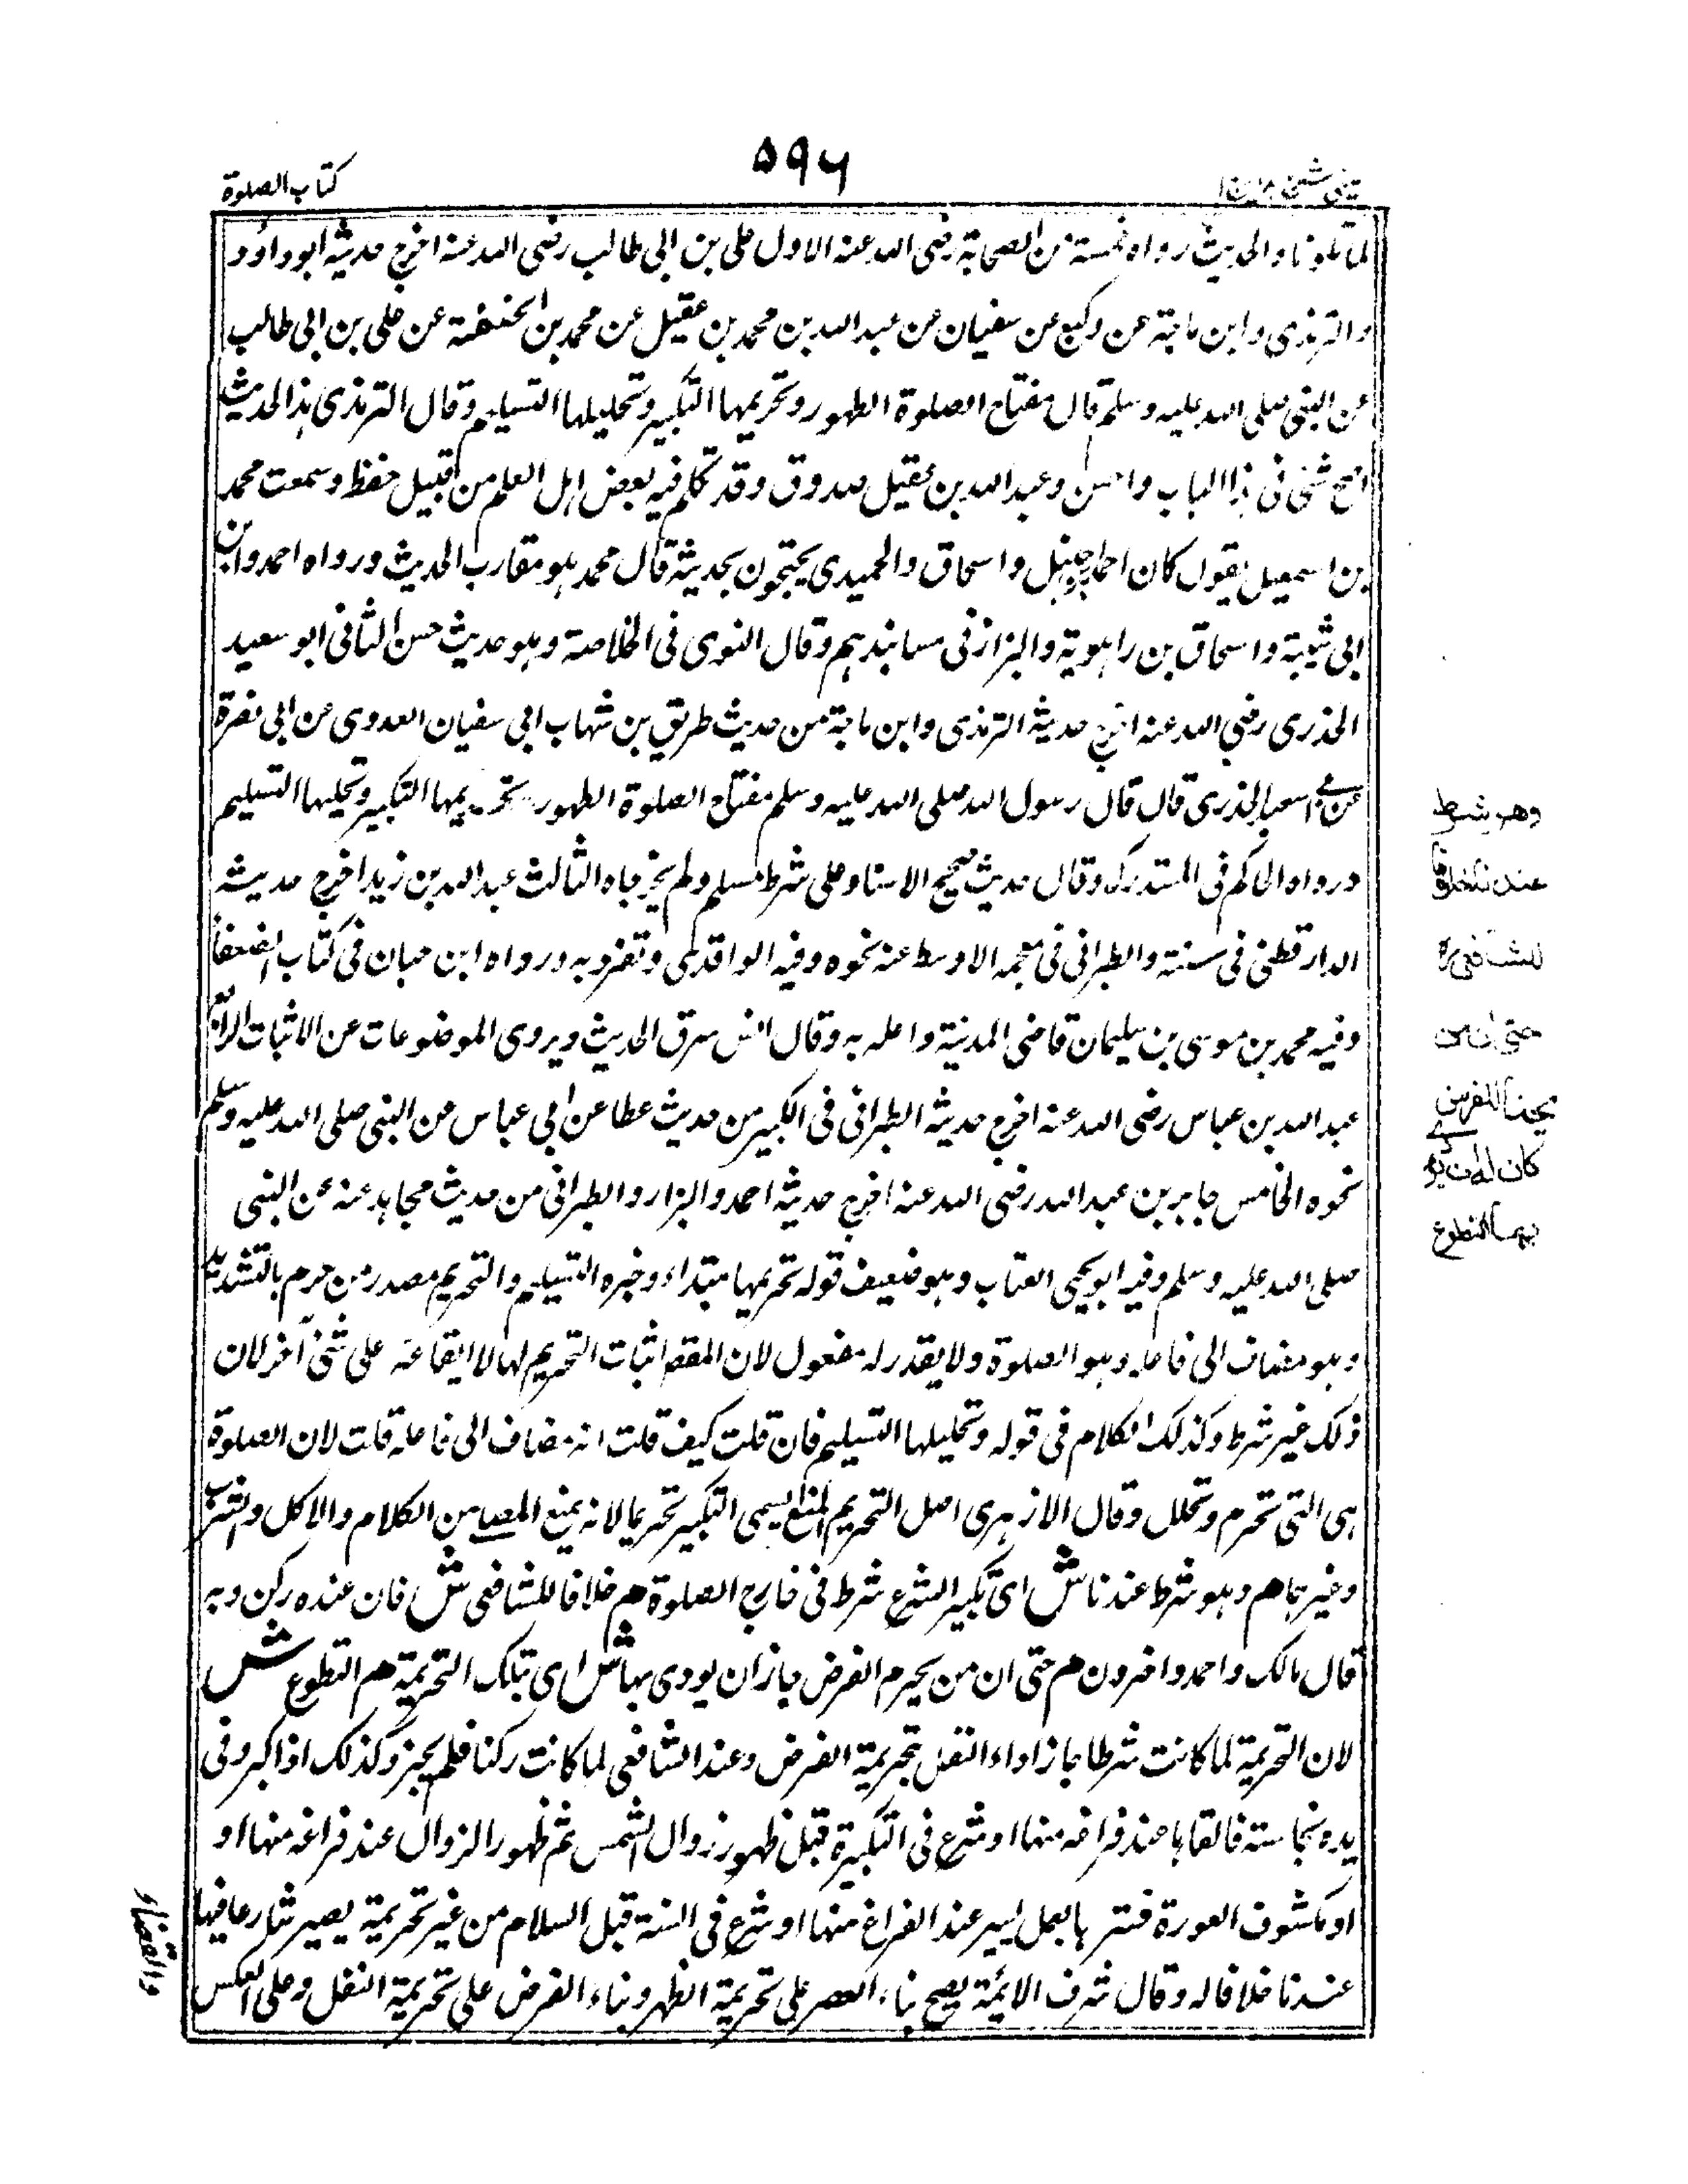 كتاب الصلوة
٥٩٦
لما تلونا والحديث رواه خمسة من الصحابة رضى الله عنه الاول على بن ابى طالب رضى الله عنه اخرج حديثه ابوداؤد
والترمذى وابن ماجة عن وكيع عن سفيان عن عبد الله بن محمد بن عقيل عن محمد بن الحنفية عن على بن ابى طالب
عن النبى صلى الله عليه وسلم قال مفتاح الصلوة الطهور وتحريمها التكبير وتحليلها التسليم وقال الترمذى هذا الحديث
اصح شئى فى هذا الباب واحسن وعبد الله بن عقيل صدوق وقد تكلم فيه بعض اهل العلم من قبيل حفظ وسمعت محمد
بن اسمعيل يقول كان احمد بن حنبل واسحاق والحميدى يحتجون بحديثه قال محمد هو مقارب الحديث ورواه احمد وابن
ابى شيبة واسحاق بن راهوية والبزار فى مسانيدهم وقال النوى فى الخلاصة وهو حديث حسن الثانى ابو سعيد
الخدرى رضى الله عنه اخرج حديثه الترمذى وابن ماجة من حديث طريق بن شهاب ابى سفيان العدوى عن ابى نضرة
عن ابى سعيد الخدرى قال قال رسول الله صلى الله عليه وسلم مفتاح الصلوة الطهور وتحريمها التكبير وتحليها التسليم
ورواه الحاكم فى المستدرك وقال حديث صحيح الاسناد على شرط مسلم ولم يخرجاه الثالث عبد الله بن زيد اخرج حديثه
الدارقطنى فى سننه والطبرانى فى معجمه الاوسط عنه نحوه وفيه الواقدى وتفرد به ورواه ابن حبان فى كتاب الضعفا
وفيه محمد بن موسى بن سليمان قاضى المدنية واعله به وقال انس سرق الحديث ويروى الموضوعات عن الاثبات الرابع
عبد الله بن عباس رضى الله عنه اخرج حديثه الطبرانى فى الكبير من حديث عطا عن ابى عباس عن النبى صلى الله عليه وسلم
نحوه الخامس جابر بن عبد الله رضى الله عنه اخرج حديثه احمد والبزار والطبرانى من حديث مجاهد عنه عن النبى
صلى الله عليه وسلم وفيه ابو يحيى العتاب وهو ضعيف قوله تحريمها مبتداء وخبره التسليم والتحريم مصدر من حرم بالتشديد
وهو مضاف الى فاعله وهو الصلوة ولا يقدر له مفعول لان المقصه اثبات التحريم لها لا ايقاعه على شئى آخر لان
ذلك غير شرط وكذلك الكلام فى قوله وتحليلها التسليم فان قلت كيف قلت انه مضاف الى فاعله قلت لان الصلوة
هى التى تحرم وتحلل وقال الازهرى اصل التحريم المنع يسمى التكبير تحريما لانه يمنع المصلى من الكلام والاكل والشرب
وغيرهما هم وهو شرط عندنا ش اى تكبير الشرع شرط فى خارج الصلوة هم خلافا للشافعى ش فان عنده ركن وبه
قال مالك واحمد واخرون هم حتى ان من يحرم الفرض جاز ان يودى بها ش اى بتلك التحريمة هم التطوع ش
لان التحريمة لما كانت شرطا جاز اداء النفل بتحريمة الفرض وعند الشافعى لما كانت ركنا فلم يجز وكذلك اذا كبر وفى
يده نجاسة فالقاها عند فراغه منها او شرع فى التكبيرة قبل ظهور زوال الشمس ثم ظهور الزوال عند فراغه منها او
او مكشوف العورة فستر ها بعمل يسير عند الفراغ منها او شرع فى السنة قبل السلام من غير تحريمة يصير شارعا فيها
عندنا خلافا له وقال شرف الائمة يصح بناء العصر على تحريمة الظهر وبناء الفرض على تحريمة النفل وعلى العكس
وهو شرط
عندنا خلافا
للشافعى ره
حتى ان من
يحرم للفرض
كان له ان يؤدى
بهما التطوع
والقضاء